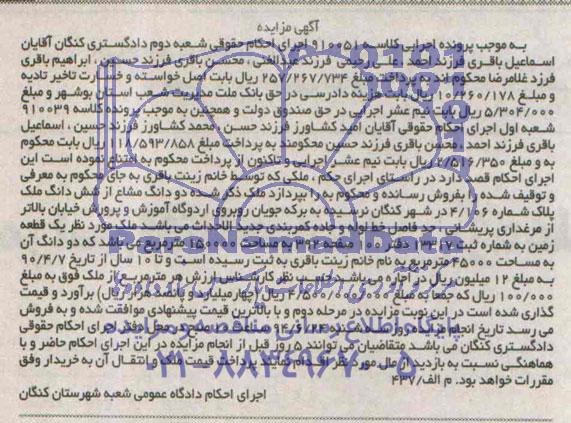 آگهی مزایده
به موجب پرونده اجرایی کلاسه ۹۱۰۰۵۱ اجرای احکام حقوقی شعبه دوم دادگستری کنگان آقایان
اسماعیل باقری فرزند احمد، علی رحیمی فرزند عبدالغنی، محسن باقری فرزند حسین، ابراهیم باقری
فرزند غلامرضا محکوم اند به پرداخت مبلغ ۲۵۷/۲۶۷/۷۳۴ ریال بابت اصل خواسته و خسارت تاخیر تادیه
و مبلغ ۲۶۰/۱۷۸ ریال بابت هزینه دادرسی در حق بانک ملت مدیریت شعب استان بوشهر و مبلغ
۵/۳۰۴/۰۰۰ ریال بابت نیم عشر اجرایی در حق صندوق دولت و همچنین به موجب پرونده کلاسه ۹۱۰۰۳۹
شعبه اول اجرای احکام حقوقی آقایان امید کشاورز فرزند حسن، محمد کشاورز فرزند حسین، اسماعیل
باقری فرزند احمد، محسن باقری فرزند حسین محکومند به پرداخت مبلغ ۱۱۸/۵۹۳/۸۵۸ ریال بابت محکوم
به و مبلغ ۲/۵۱۶/۳۵۰ ریال بابت نیم عشر اجرایی و تاکنون از پرداخت محکوم به امتناع نموده است این
اجرای احکام قصد دارد در راستای اجرای حکم، ملکی که توسط خانم زینت باقری به جای محکوم به معرفی
و توقیف شده را بفروش رسانده و محکوم به را بپردازد ملک ذکر شده دو دانگ مشاع از شش دانگ ملک
پلاک شماره ۴/۱۰۶ در شهر کنگان نرسیده به برکه جویان روبروی اردوگاه آموزش و پرورش خیابان بالاتر
از مرغداری پریشانی حد فاصل خط لوله و جاده کمربندی جدید الاحداث می باشد ملک مورد نظر یک قطعه
زمین به شماره ثبت ۳۳۱۷ دفتر ۱۰۰ صفحه ۳۹۲ به مساحت ۱۵۰۰۰ مترمربع می باشد که دو دانگ آن
به مساحت ۴۵۰۰۰ مترمربع به نام خانم زینت باقری به ثبت رسیده است و تا ۱۰ سال از تاریخ ۹۰/۴/۷
به مبلغ ۱۲ میلیون ریال در اجاره می باشد حسب نظر کارشناس ارزش هر مترمربع از ملک فوق به مبلغ
۱۰۰/۰۰۰ ریال که جمعا به مبلغ ۴/۵۰۰/۰۰۰/۰۰۰ ریال (چهار میلیارد و پانصد هزار ریال) برآورد و قیمت
گذاری شده است در این نوبت مزایده در مرحله دوم و با بالاترین قیمت پیشنهادی موافقت شده و به فروش
می رسد تاریخ انجام مزایده روز شنبه ۹۱/۶/۲۴ ساعت ۱۰ صبح در محل دفتر اجرای احکام حقوقی
دادگستری کنگان می باشد متقاضیان می توانند ۵ روز قبل از انجام مزایده در این اجرای احکام حاضر و با
هماهنگی نسبت به بازدید از مال مورد نظر اقدام نمایند پرداخت قیمت ملک و انتقال آن به خریدار وفق
مقررات خواهد بود. م الف/۴۳۷
اجرای احکام دادگاه عمومی شعبه شهرستان کنگان
پایگاه اطلاع رسانی مناقصه مزایده
۰۲۱-۸۸۳۴۹۶۷۰-۵